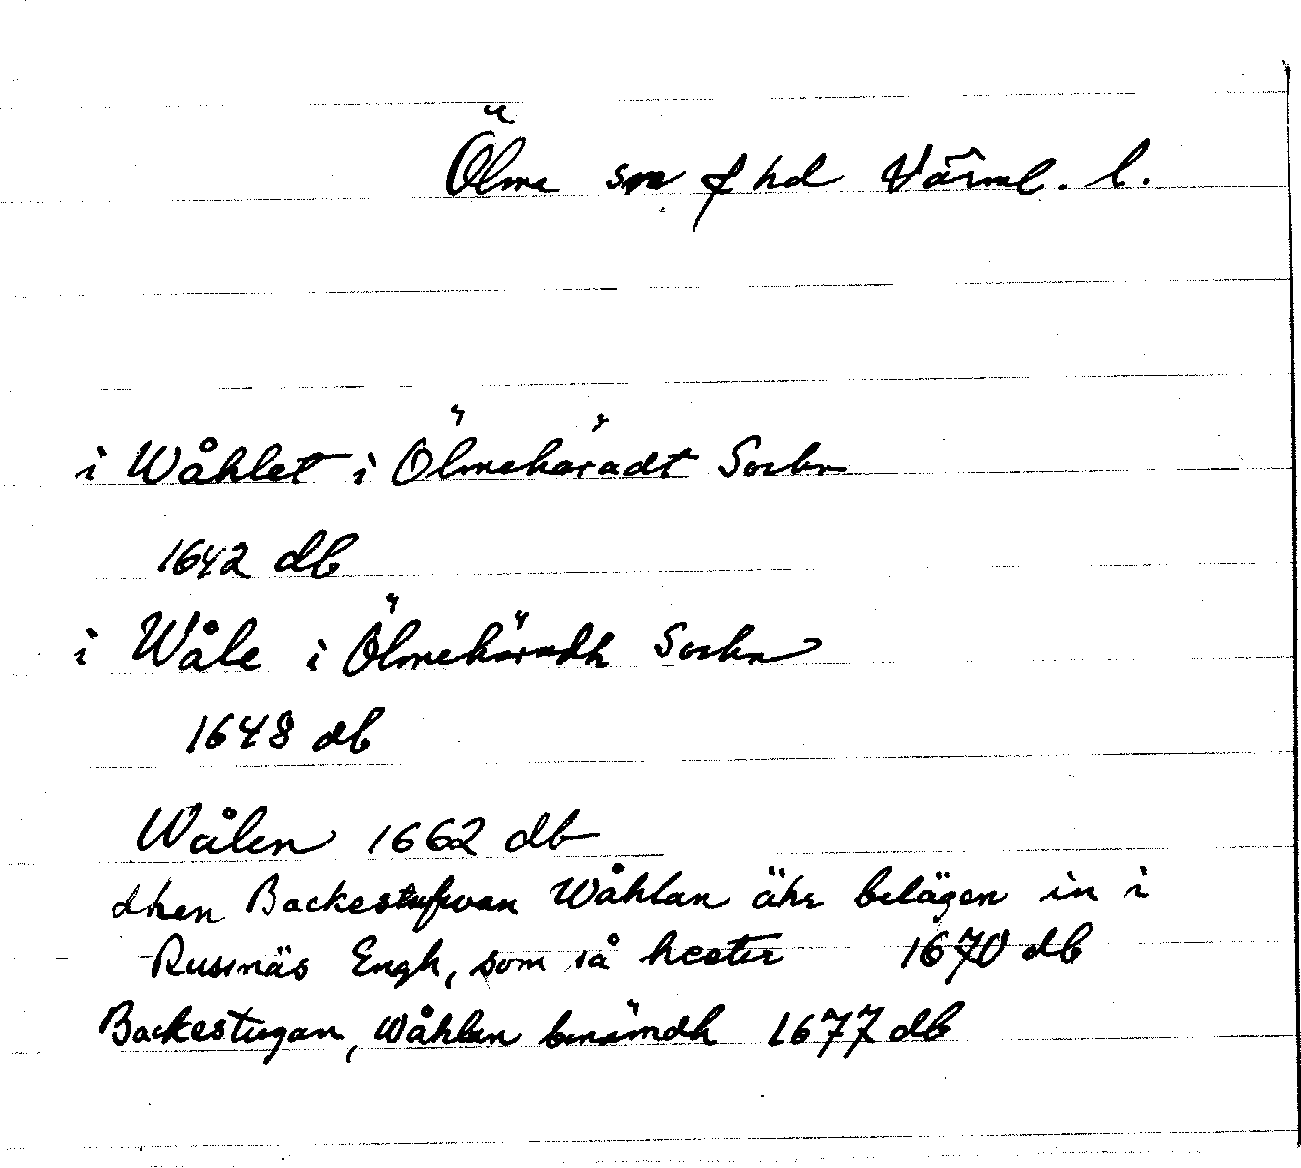 Ölme sn o hd Värml. l.
i Wåhlet i Ölmehäradt Sockn
1642 db
i Wåle i Ölmehäradh Sockn
1648 db
Wålen 1662 db
dhen Backestufwan Wåhlan ähr belägen in i
Rusinäs Engh, som så heeter 1670 db
Backestugan, Wåhlen benämdh 1677 db